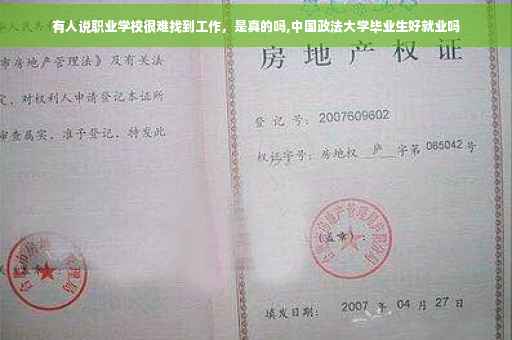 有人说职业学校很难找到工作，是真的吗,中国政法大学毕业生好就业吗
华人民共
市房地产管理法》及有关法
定，对权利人申请登记本证所
审查属实，准予登记，特发此
房地产权
登 记 号：2007609602
权证字号：房地权 庐 字第 065042 号
（盖章）：
填发日期： 2007 年 04 月 27 日